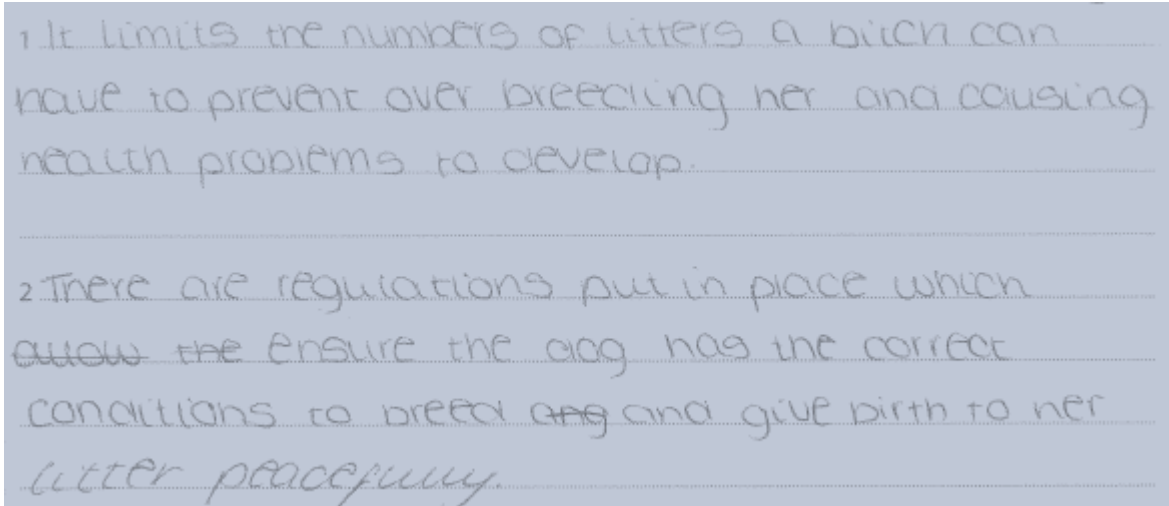 1 It limits the numbers of litters a bitch can
have to prevent over breeding her and causing
health problems to develop.
2 There are regulations put in place which
allow the ensure the dog has the correct
conditions to breed ang and give birth to her
litter peacefully.